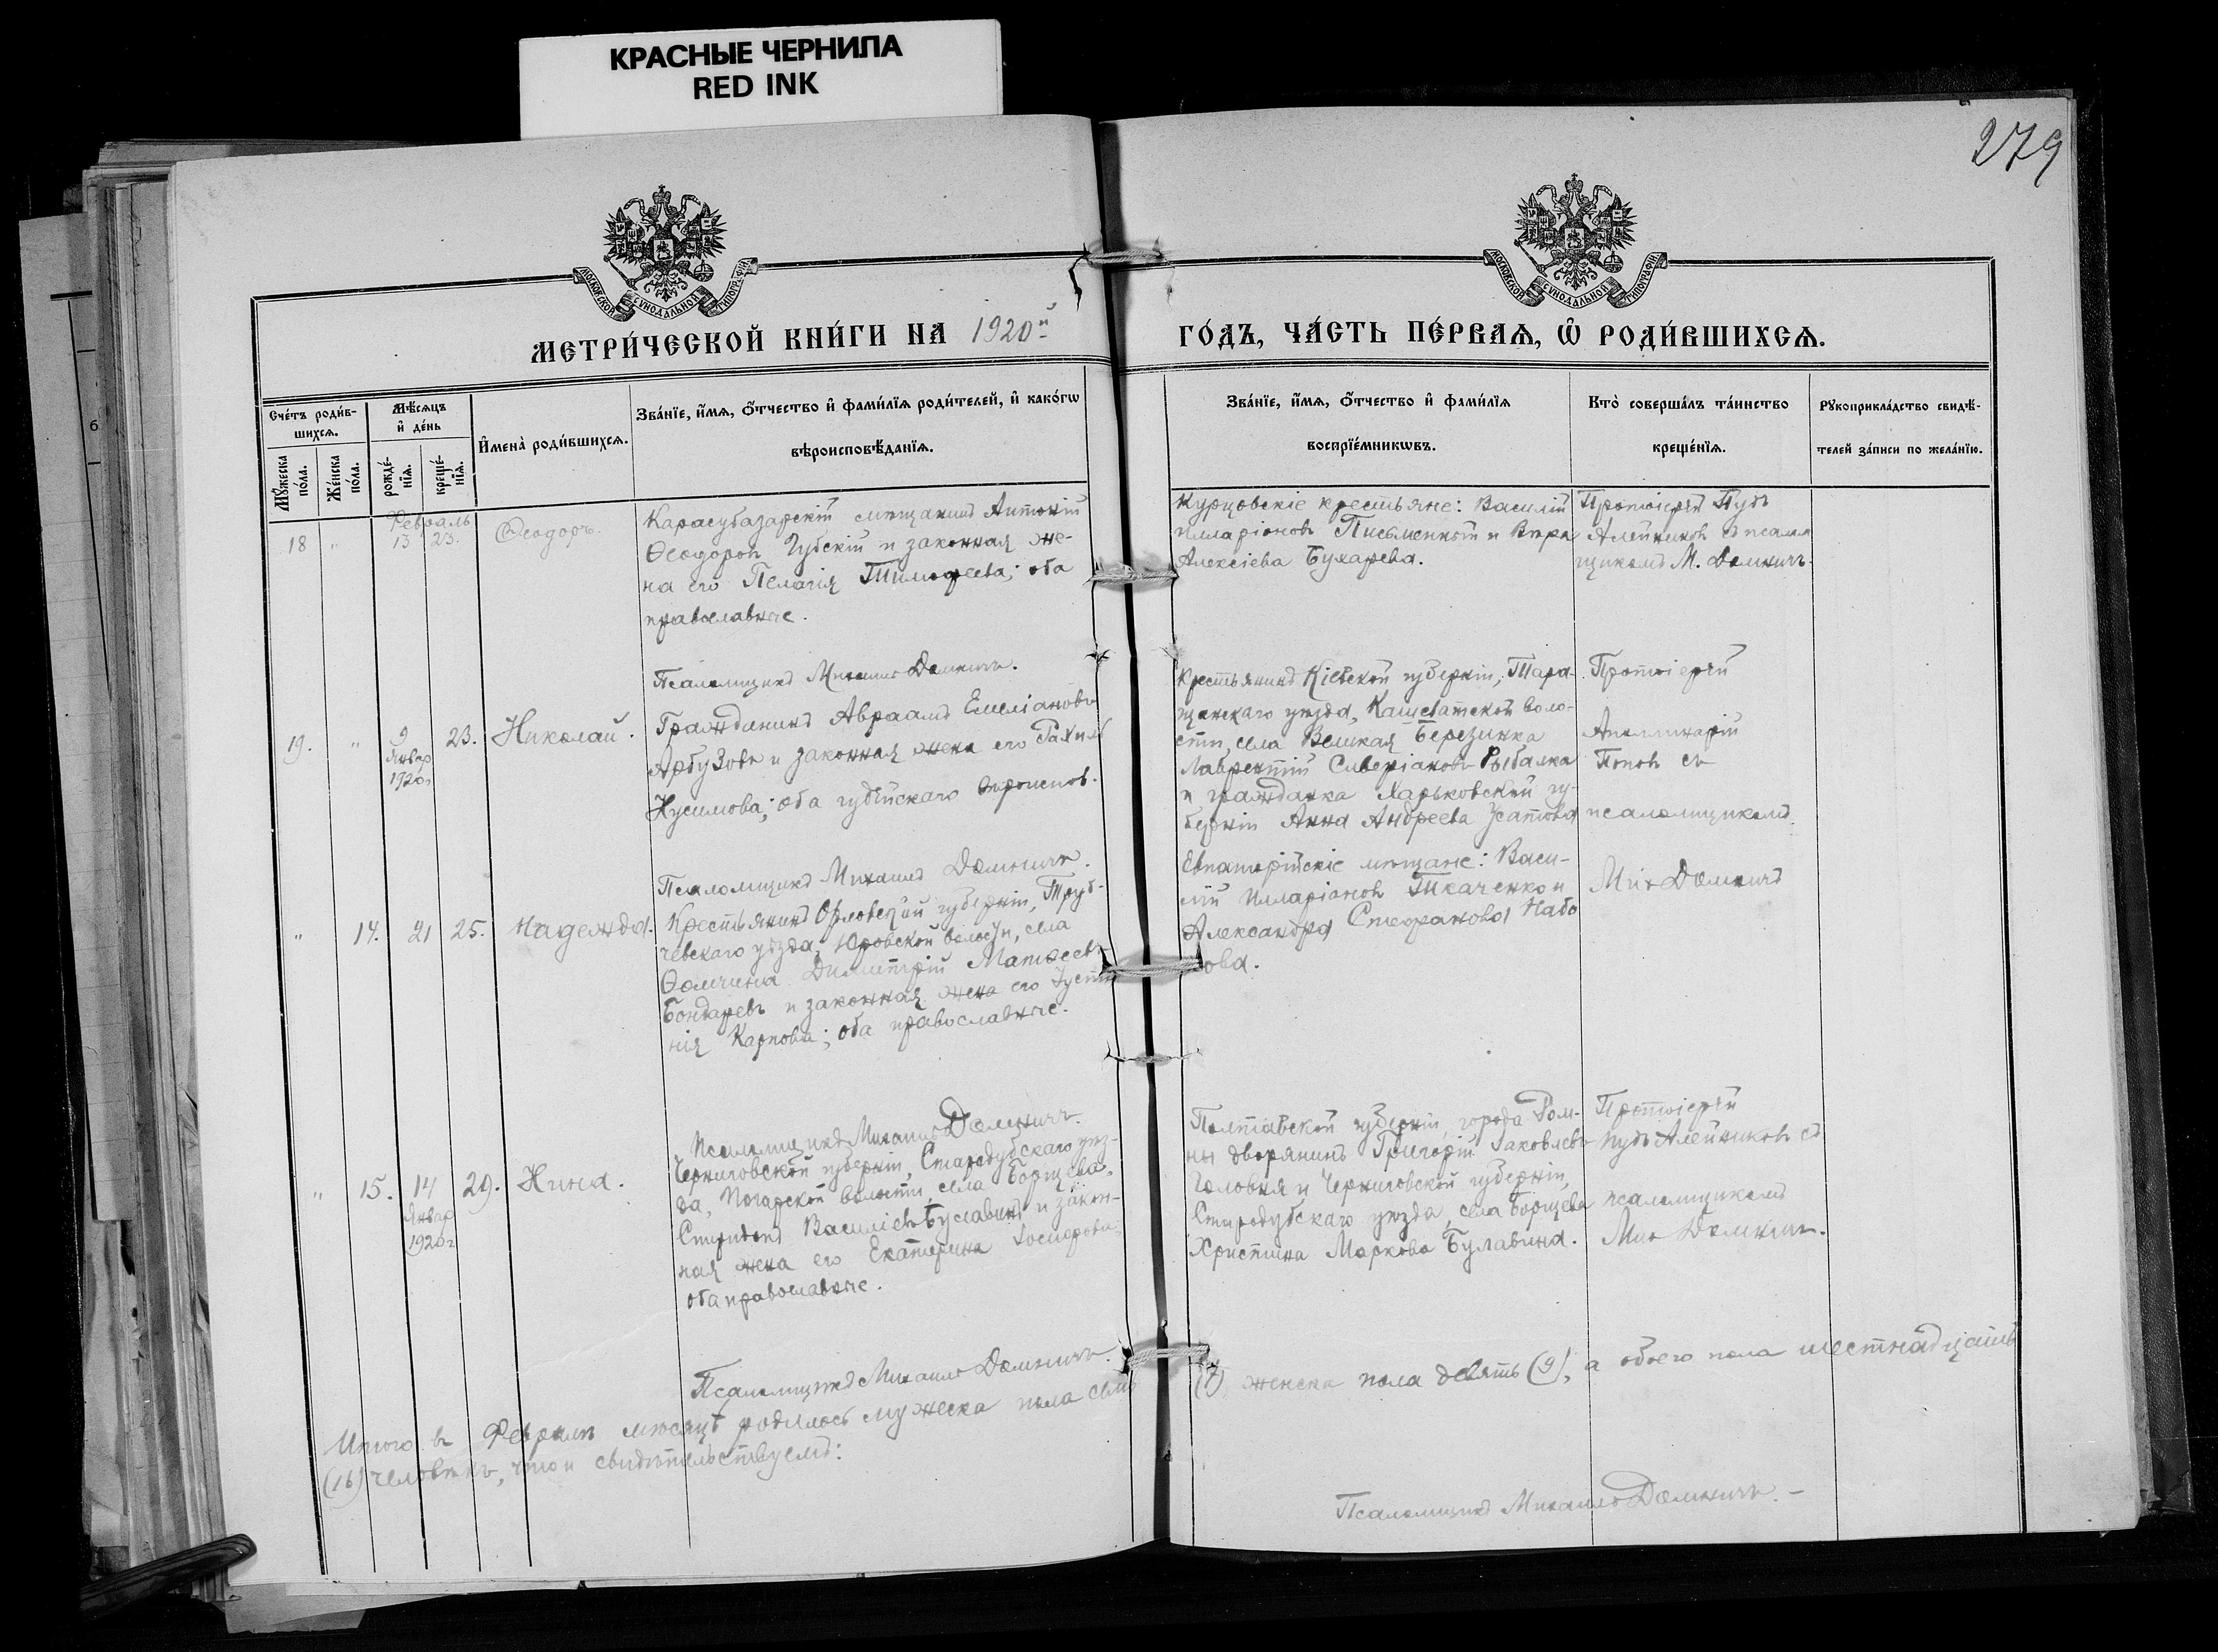 КРАСНЫЕ ЧЕРНИЛА
RED INK
279
МОСКОВСКОЙ СѴНОДАЛЬНОЙ ТИПОГРАФІИ
МОСКОВСКОЙ СѴНОДАЛЬНОЙ ТИПОГРАФІИ
МЕТРИ́ЧЕСКОЙ КНИ́ГИ НА 1920й
ГО́ДЪ, ЧА́СТЬ ПЕ́РВАѦ, Ѽ РОДИ́ВШИХСѦ.
Сче́тъ роди́в-
шихсѧ.
Мꙋ́жеска по́ла.
Же́нска по́ла.
Мѣ́сѧцъ
и҆ де́нь
рожде́-
нїѧ.
креще́-
нїѧ.
И҆мена̀ роди́вшихсѧ.
Зва́нїе, и҆́мѧ, ѻ҆́тчество и҆ фами́лїѧ роди́телей, и҆ како́гѡ
вѣроисповѣ́данїѧ.
Зва́нїе, и҆́мѧ, ѻ҆́тчество и҆ фами́лїѧ
воспрїе́мникѡвъ.
Кто̀ соверша́лъ та́инство
креще́нїѧ.
Рꙋкоприкла́дство свидѣ́-
телей за́писи по жела́нїю.
Февраль
18 " 13 23. Ѳеодоръ.
Карасубазарскій мѣщанинъ Антоній
Ѳеодоровъ Губскій и законная же-
на его Пелагія Тимофеева; оба
православные.
Курцовскіе крестьяне: Василій
Илларіоновъ Письменный и Вѣра
Алексіева Бухарева.
Протоіерей Пудъ
Алейниковъ съ псалом
щикомъ М. Домничъ.
Псаломщикъ Михаилъ Домничъ.
19. " 9 23. Николай.
Январ
1920г
Гражданинъ Авраамъ Емеліановъ
Арбузовъ и законная жена его Рахиль
Нусимова; оба іудейскаго вѣроиспов.
Крестьянинъ Кіевской губерніи, Тара-
щанскаго уѣзда, Кашеватской воло-
сти, села Великая Березинка
Лаврентій Сиверіановъ Рыбалка
и гражданка Харьковской гу-
берніи Анна Андреева Усатова
Протоіерей
Апполинарій
Поповъ съ
псаломщикомъ
Мих Домничъ
Псаломщикъ Михаилъ Домничъ.
" 14. 21 25. Надежда.
Крестьянинъ Орловской губерніи, Труб-
чевскаго уѣзда, Юровской волости, села
Ѳомчина Димитрій Матѳеевъ
Бондаревъ и законная жена его Усти
нія Карпова; оба православные.
Евпаторійскіе мѣщане: Васи-
лій Илларіоновъ Ткаченко и
Александра Стефанова Набо
кова.
Псаломщикъ Михаилъ Домничъ.
" 15. 14 29. Нина.
Январ
1920г
Черниговской губерніи, Стародубскаго уѣз-
да, Погарской волости, села Борщева,
Спиридонъ Василіевъ Булавинъ и закон-
ная жена его Екатерина
оба православные.
Полтавской губерніи, города Ром-
ны дворянинъ Григорій Іаковлевъ
Головня и Черниговской губерніи,
Стародубскаго уѣзда, села Борщева
Христина Маркова Булавина.
Протоіерей
Пудъ Алейниковъ съ
псаломщикомъ
Мих Домничъ.
Псаломщикъ Михаилъ Домничъ.
Итого въ Февралѣ мѣсяцѣ родилось мужеска пола семь
(7) женска пола девять (9), а обоего пола шестнадцать
(16) человѣкъ, что и свидѣтельствуемъ:
Псаломщикъ Михаилъ Домничъ.-